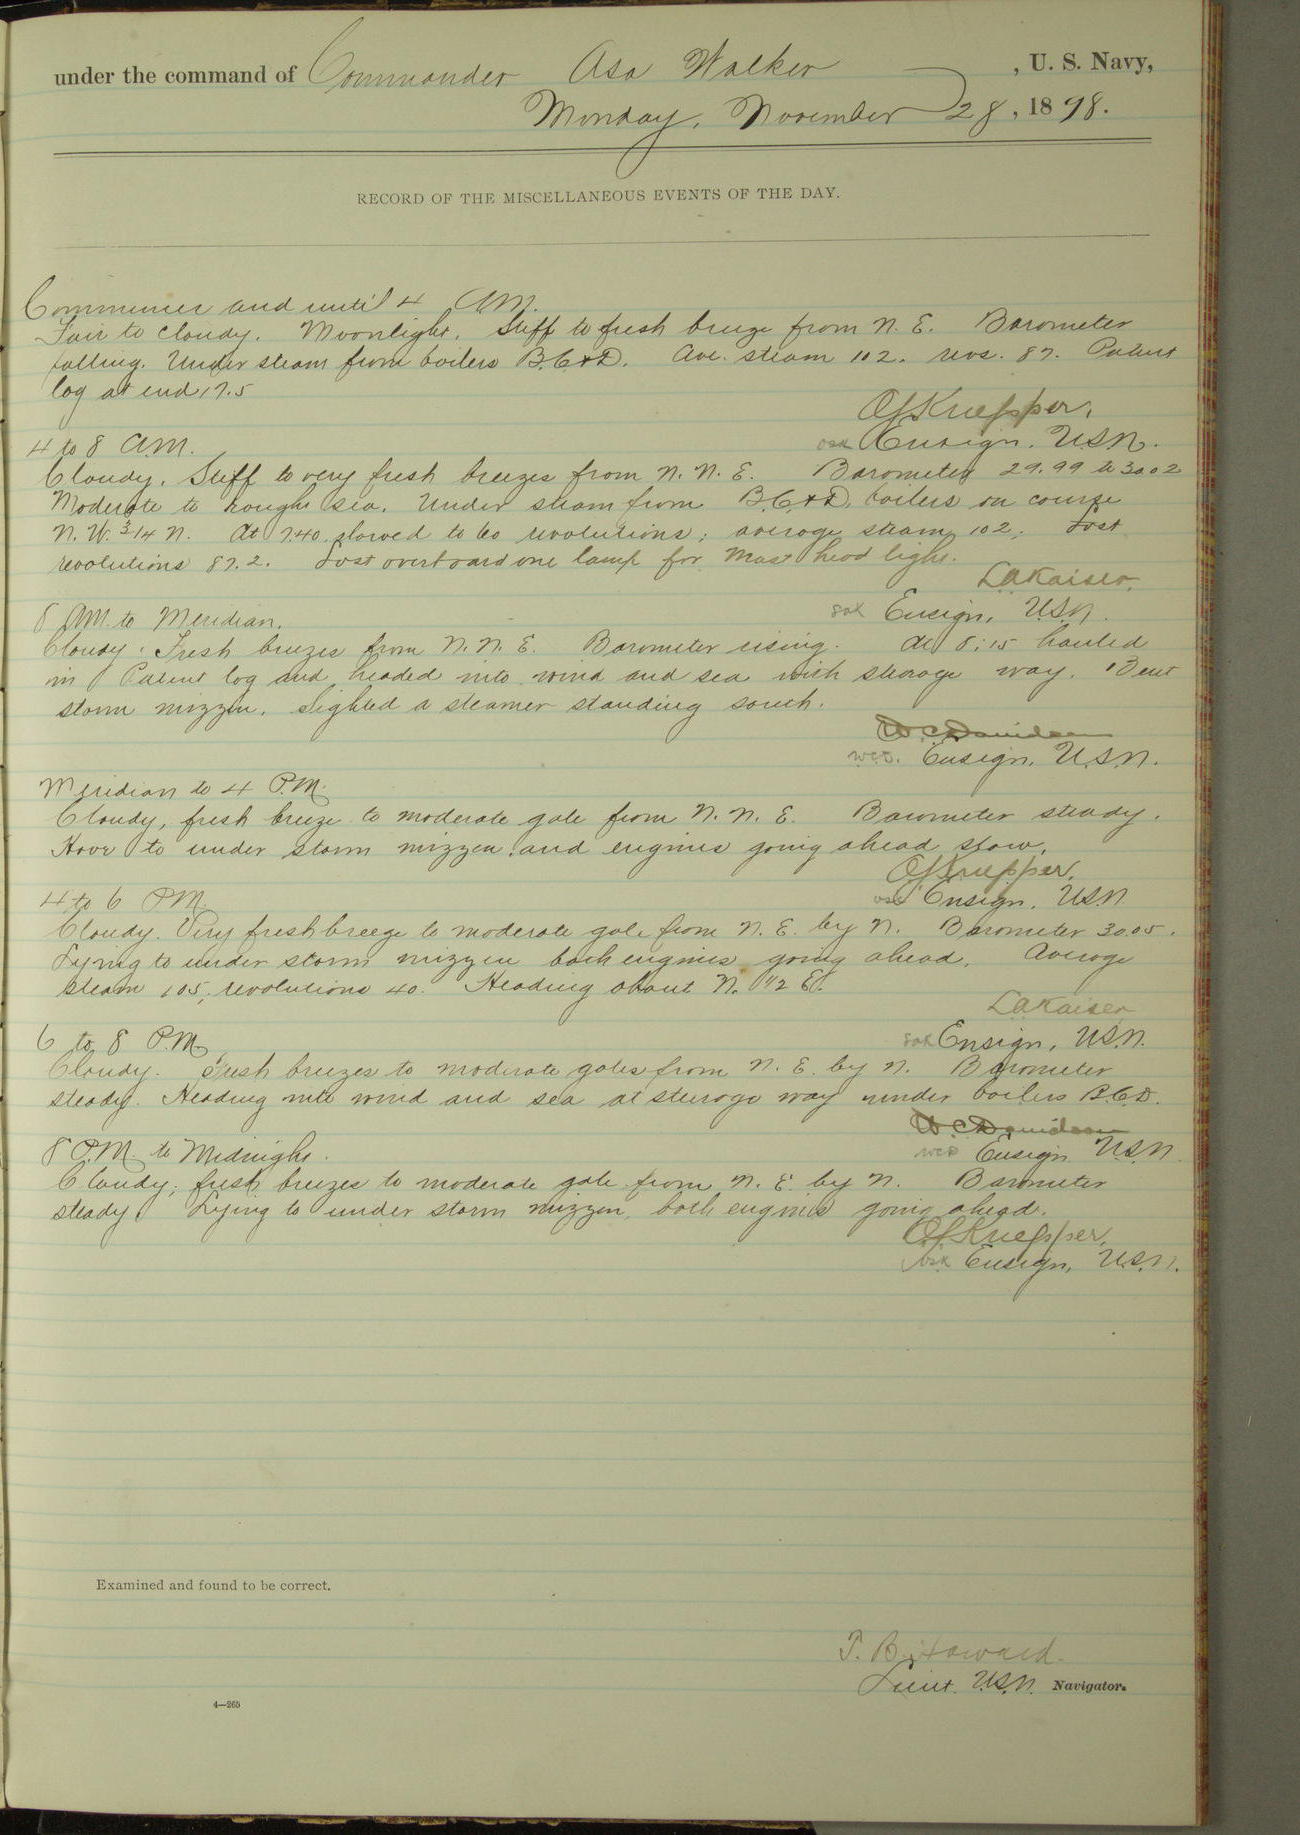 under the command of Commander Asa Walker, U. S. Navy,
Monday, November 28, 1898.
RECORD OF THE MISCELLANEOUS EVENTS OF THE DAY.
Commence and until 4 A.M.
Fair to cloudy. Moonlight. Stiff to fresh breeze from N. E. Barometer
falling. Under steam from boilers B. C. & D. Ave. steam 102. revs. 87. Patent
log at end 17.5
O.S. Knepper,
osk Ensign. U.S.N.
4 to 8 A.M.
Cloudy. Stiff to very fresh breezes from N. N. E. Barometer 29.99 to 30.02
Moderate to rough sea. Under steam from B.C.&D. boilers on course
N. W. 3/4 N. At 7.40 slowed to 60 revolutions; average steam 102.
revolutions 87.2. Lost overboard one lamp for mast head light.
L A Kaiser,
Ensign, U.S.N.
8 A.M. to Meridian.
Cloudy. Fresh breezes from N. N. E. Barometer rising. At 8:15 hauled
in Patent log and headed into wind and sea with steerage way. Bent
storm mizzen. Sighted a steamer standing south.
W C Davidson
WCD. Ensign, U.S.N.
Meridian to 4 P.M.
Cloudy, fresh breeze to moderate gale from N. N. E. Barometer steady.
Hove to under storm mizzen and engines going ahead slow.
O.S. Knepper,
osk Ensign, U.S.N.
4 to 6 P.M.
Cloudy. Very fresh breeze to moderate gale from N. E. by N. Barometer 30.05.
Lying to under storm mizzen both engines going ahead. Average
steam 105, revolutions 40. Heading about N. 1/2 E.
L A Kaiser
Ensign, U.S.N.
6 to 8 P.M.
Cloudy. Fresh breezes to moderate gales from N. E. by N. Barometer
steady. Heading into wind and sea at steerage way under boilers B.C.D.
W C Davidson
WCD Ensign U.S.N.
8 P.M. to Midnight.
Cloudy; fresh breezes to moderate gale from N. E. by N. Barometer
steady. Lying to under storm mizzen, both engines going ahead.
O.S. Knepper,
osk Ensign, U.S.N.
Examined and found to be correct.
T. B. Howard.
Lieut. U.S.N. Navigator.
4—265